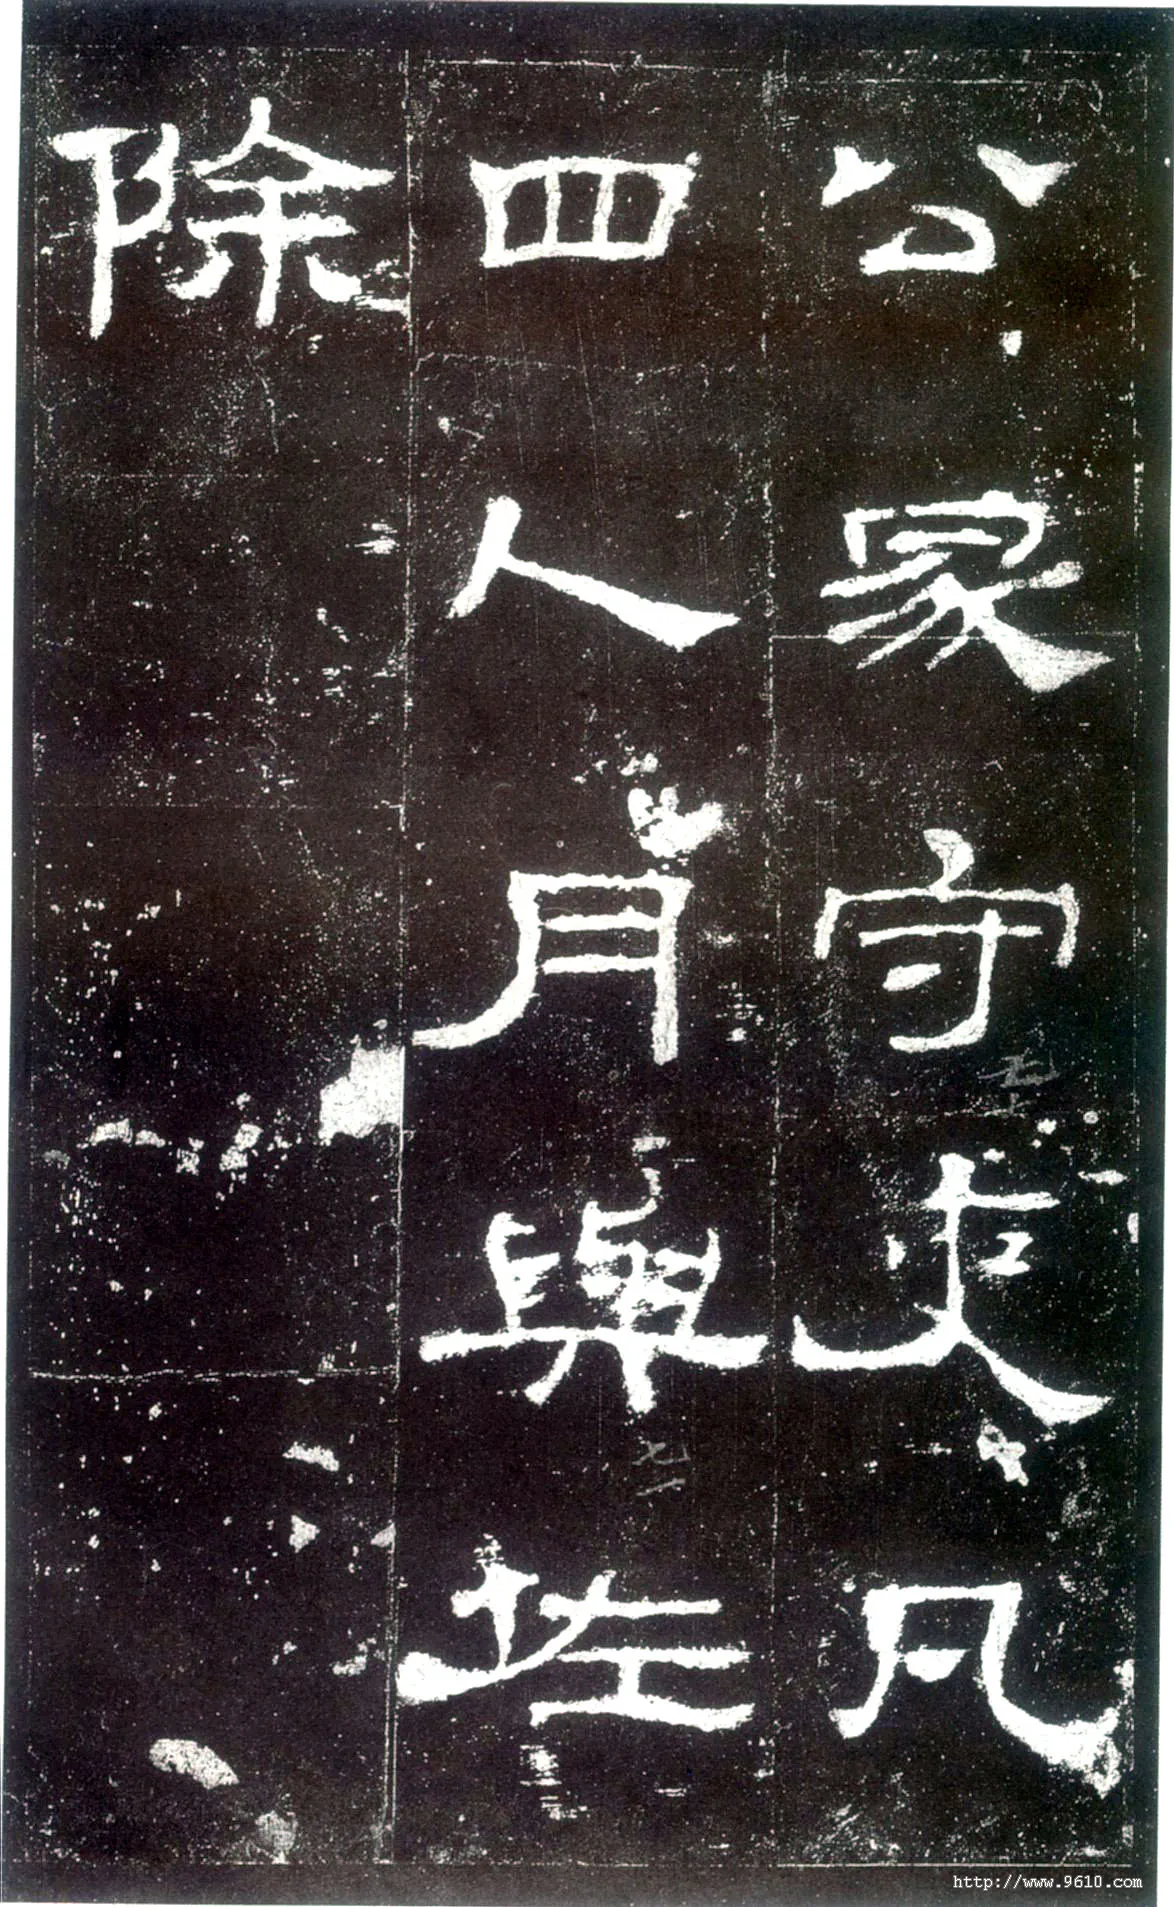 公冢守吏凡
四人月與佐
除
http://www.9610.com